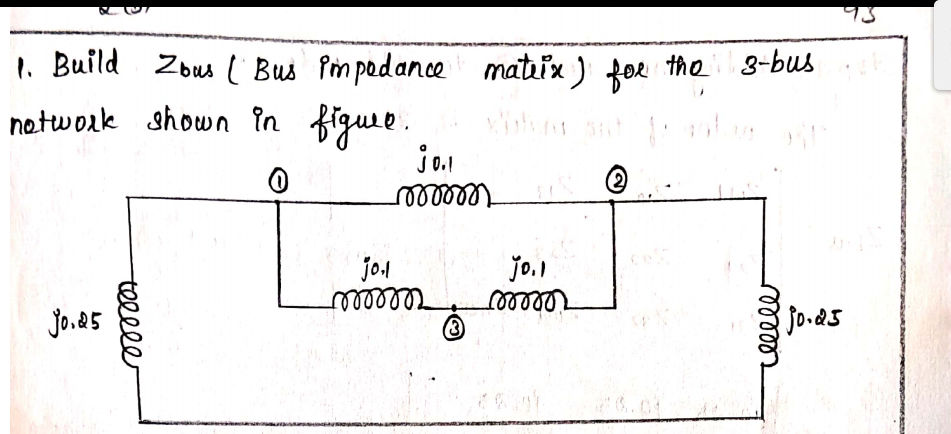 93
1. Build Zbus ( Bus Impedance matrix ) for the 3-bus
network shown in figure.
j0.1
1
2
j0.1
j0.1
j0.25
3
j0.25